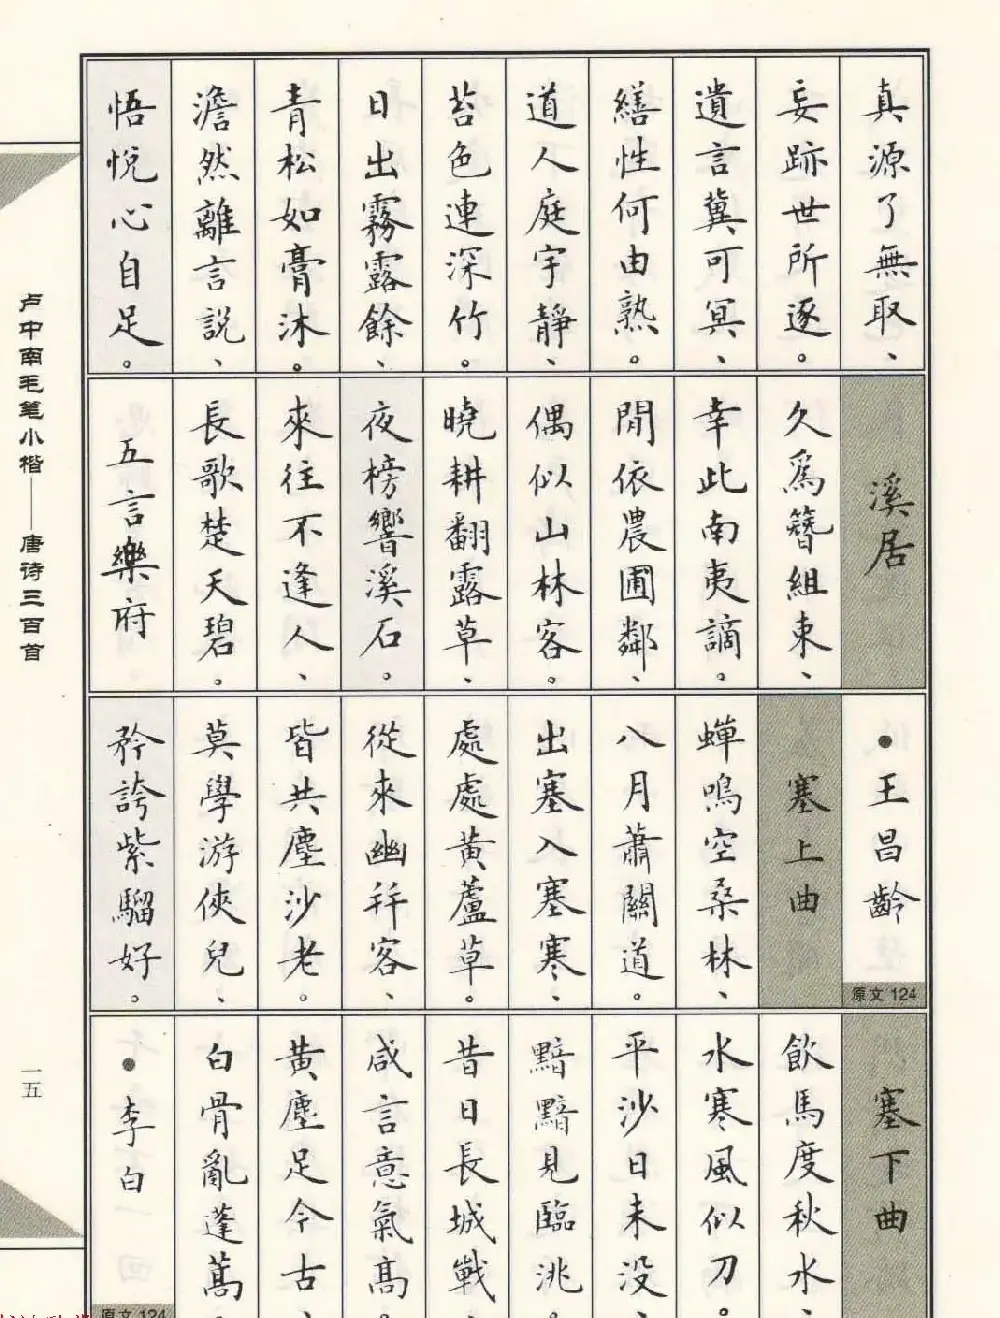 真源了無取、
妄跡世所逐。
遺言冀可冥、
繕性何由熟。
道人庭宇靜、
苔色連深竹。
日出霧露餘、
青松如膏沐。
澹然離言說、
悟悅心自足。
溪居
久爲簪組束、
幸此南夷謫。
閒依農圃鄰、
偶似山林客。
曉耕翻露草、
夜榜響溪石。
來往不逢人、
長歌楚天碧。
五言樂府
●王昌齡
原文 124
塞上曲
蟬鳴空桑林、
八月蕭關道。
出塞入塞寒、
處處黃蘆草。
從來幽幷客、
皆共塵沙老。
莫學游俠兒、
矜誇紫騮好。
塞下曲
飲馬度秋水、
水寒風似刀。
平沙日未没、
黯黯見臨洮。
昔日長城戰、
咸言意氣高。
黃塵足今古、
白骨亂蓬蒿
●李白
原文 124
卢中南毛笔小楷——唐诗三百首
一五